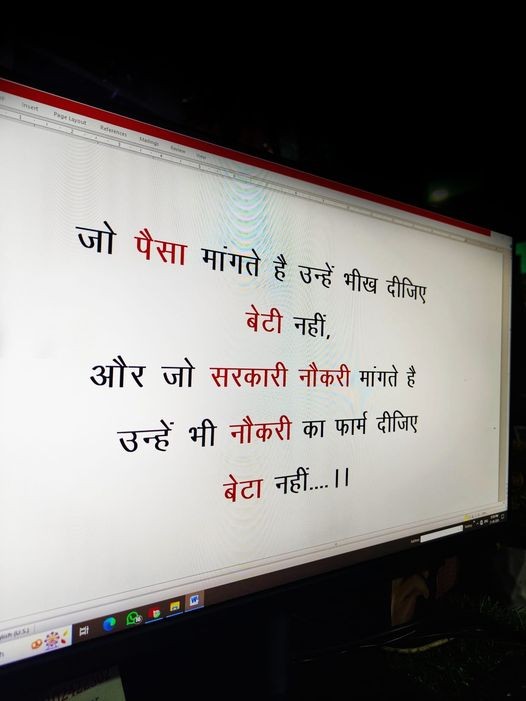 Insert Page Layout References Mailings Review View
जो पैसा मांगते है उन्हें भीख दीजिए
बेटी नहीं,
और जो सरकारी नौकरी मांगते है
उन्हें भी नौकरी का फार्म दीजिए
बेटा नहीं....।।